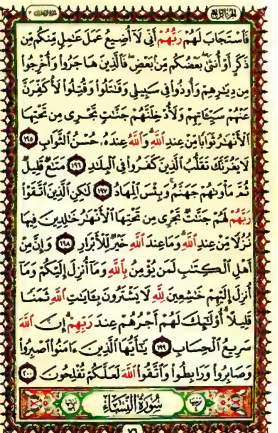 فَاسْتَجَابَ لَهُمْ رَبُّهُمْ أَنِّي لَا أُضِيعُ عَمَلَ عَامِلٍ مِنْكُمْ مِنْ
ذَكَرٍ أَوْ أُنْثَى بَعْضُكُمْ مِنْ بَعْضٍ فَالَّذِينَ هَاجَرُوا وَأُخْرِجُوا
مِنْ دِيَارِهِمْ وَأُوذُوا فِي سَبِيلِي وَقَاتَلُوا وَقُتِلُوا لَأُكَفِّرَنَّ
عَنْهُمْ سَيِّئَاتِهِمْ وَلَأُدْخِلَنَّهُمْ جَنَّاتٍ تَجْرِي مِنْ تَحْتِهَا
الْأَنْهَارُ ثَوَابًا مِنْ عِنْدِ اللَّهِ وَاللَّهُ عِنْدَهُ حُسْنُ الثَّوَابِ ١٩٥
لَا يَغُرَّنَّكَ تَقَلُّبُ الَّذِينَ كَفَرُوا فِي الْبِلَادِ ١٩٦ مَتَاعٌ قَلِيلٌ
ثُمَّ مَأْوَاهُمْ جَهَنَّمُ وَبِئْسَ الْمِهَادُ ١٩٧ لَكِنِ الَّذِينَ اتَّقَوْا
رَبَّهُمْ لَهُمْ جَنَّاتٌ تَجْرِي مِنْ تَحْتِهَا الْأَنْهَارُ خَالِدِينَ فِيهَا
نُزُلًا مِنْ عِنْدِ اللَّهِ وَمَا عِنْدَ اللَّهِ خَيْرٌ لِلْأَبْرَارِ ١٩٨ وَإِنَّ مِنْ
أَهْلِ الْكِتَابِ لَمَنْ يُؤْمِنُ بِاللَّهِ وَمَا أُنْزِلَ إِلَيْكُمْ وَمَا
أُنْزِلَ إِلَيْهِمْ خَاشِعِينَ لِلَّهِ لَا يَشْتَرُونَ بِآيَاتِ اللَّهِ ثَمَنًا
قَلِيلًا أُولَئِكَ لَهُمْ أَجْرُهُمْ عِنْدَ رَبِّهِمْ إِنَّ اللَّهَ
سَرِيعُ الْحِسَابِ ١٩٩ يَا أَيُّهَا الَّذِينَ آمَنُوا اصْبِرُوا
وَصَابِرُوا وَرَابِطُوا وَاتَّقُوا اللَّهَ لَعَلَّكُمْ تُفْلِحُونَ ٢٠٠
سُورَةُ النِّسَاءِ
٧٦